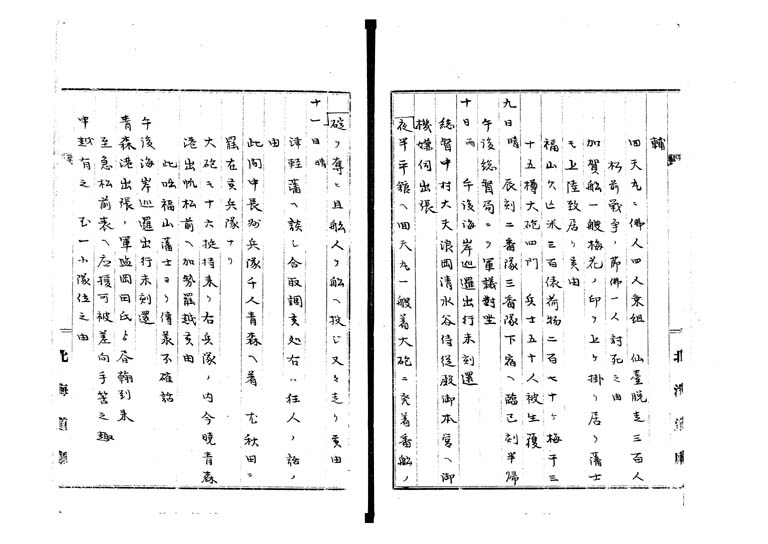 輔
回天丸ニ佛人四人乗組 仙臺脱走三百人
松前戦争ノ節佛一人討死之由
加賀船一艘梅花ノ印ヲ上ケ掛リ居リ藩士
モ上陸致居リ候由
福山久々米三百俵荷物二百七十ヶ梅干三
十五樽大砲四門 兵士五十人被生獲
九日晴 辰刻二番隊三番隊下宿ヘ臨已刻半帰
午後総督局ニテ軍議對坐
十日雨 午後海岸巡邏出行未刻還
総督中村大天浪岡清水谷侍従殿御本営ヘ御
機嫌伺出張
夜半平舘ヘ回天丸一般着大砲ニ発着番船ノ
碇ヲ奪ヒ且船人ヲ船ヘ投シ又々走リ候由
十一日晴
津軽藩ヘ談シ合取調候処右ハ狂人ノ話ノ
由
此内中長州兵隊千人青森ヘ着 尤秋田ニ
罷在候兵隊ナリ
大砲モ十六挺持来リ右兵隊ノ内今晩青森
港出帆松前ヘ加勢罷越候由
此咄福山藩士ヨリ傳承不確話
午後海岸巡邏出行未刻還
青森港出張ノ軍監岡田氏ゟ答翰到来
至急松前表ヘ應援可被差向手筈之趣
申越有之 尤一小隊位之由
北海道廳
北海道廳